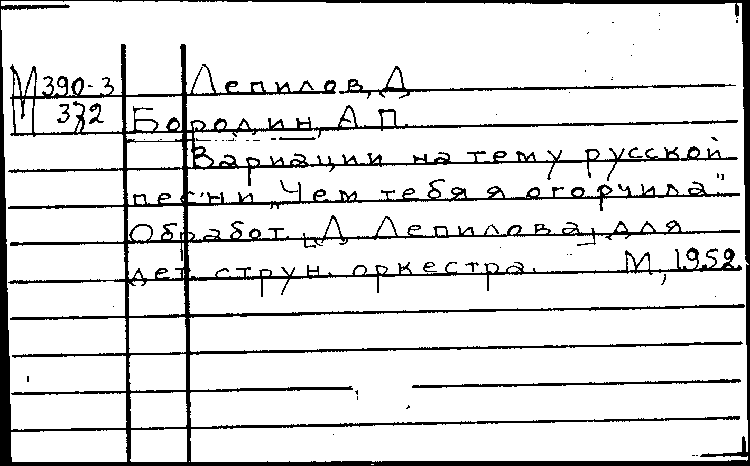 М 390-3 Лепилов, Д
372
Бородин, А П.
Вариации на тему русской
песни „Чем тебя я огорчила"
Обработ. [Д Лепилова] для
дет. струн. оркестра. М, 1952.